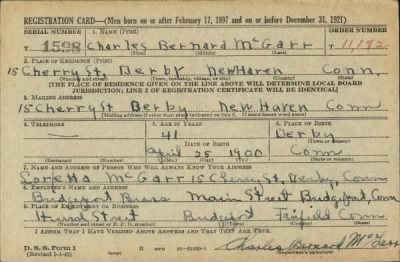 REGISTRATION CARD—(Men born on or after February 17, 1897 and on or before December 31, 1921)
SERIAL NUMBER 1. NAME (Print) ORDER NUMBER
T 1598 Charles Bernard McGarr T 11182
(First) (Middle) (Last)
2. PLACE OF RESIDENCE (Print)
15 Cherry St Derby New Haven Conn.
(Number and street) (Town, township, village, or city) (County) (State)
[THE PLACE OF RESIDENCE GIVEN ON THE LINE ABOVE WILL DETERMINE LOCAL BOARD
JURISDICTION; LINE 2 OF REGISTRATION CERTIFICATE WILL BE IDENTICAL]
3. MAILING ADDRESS
15 Cherry St Derby New Haven Conn
[Mailing address if other than place indicated on line 2. If same insert word same]
4. TELEPHONE 5. AGE IN YEARS 6. PLACE OF BIRTH
— 41 Derby
DATE OF BIRTH (Town or county)
April 25 1900 Conn
(Exchange) (Number) (Mo.) (Day) (Yr.) (State or country)
7. NAME AND ADDRESS OF PERSON WHO WILL ALWAYS KNOW YOUR ADDRESS
Loretta McGarr 15 Cherry St, Derby, Conn
8. EMPLOYER'S NAME AND ADDRESS
Bridgeport Brass Main Street Bridgeport, Conn
9. PLACE OF EMPLOYMENT OR BUSINESS
Street Bridgeport Fairfield Conn
(Number and street or R. F. D. number) (Town) (County) (State)
I AFFIRM THAT I HAVE VERIFIED ABOVE ANSWERS AND THAT THEY ARE TRUE.
D. S. S. Form 1
(Revised 1-1-42) Charles Bernard McGarr